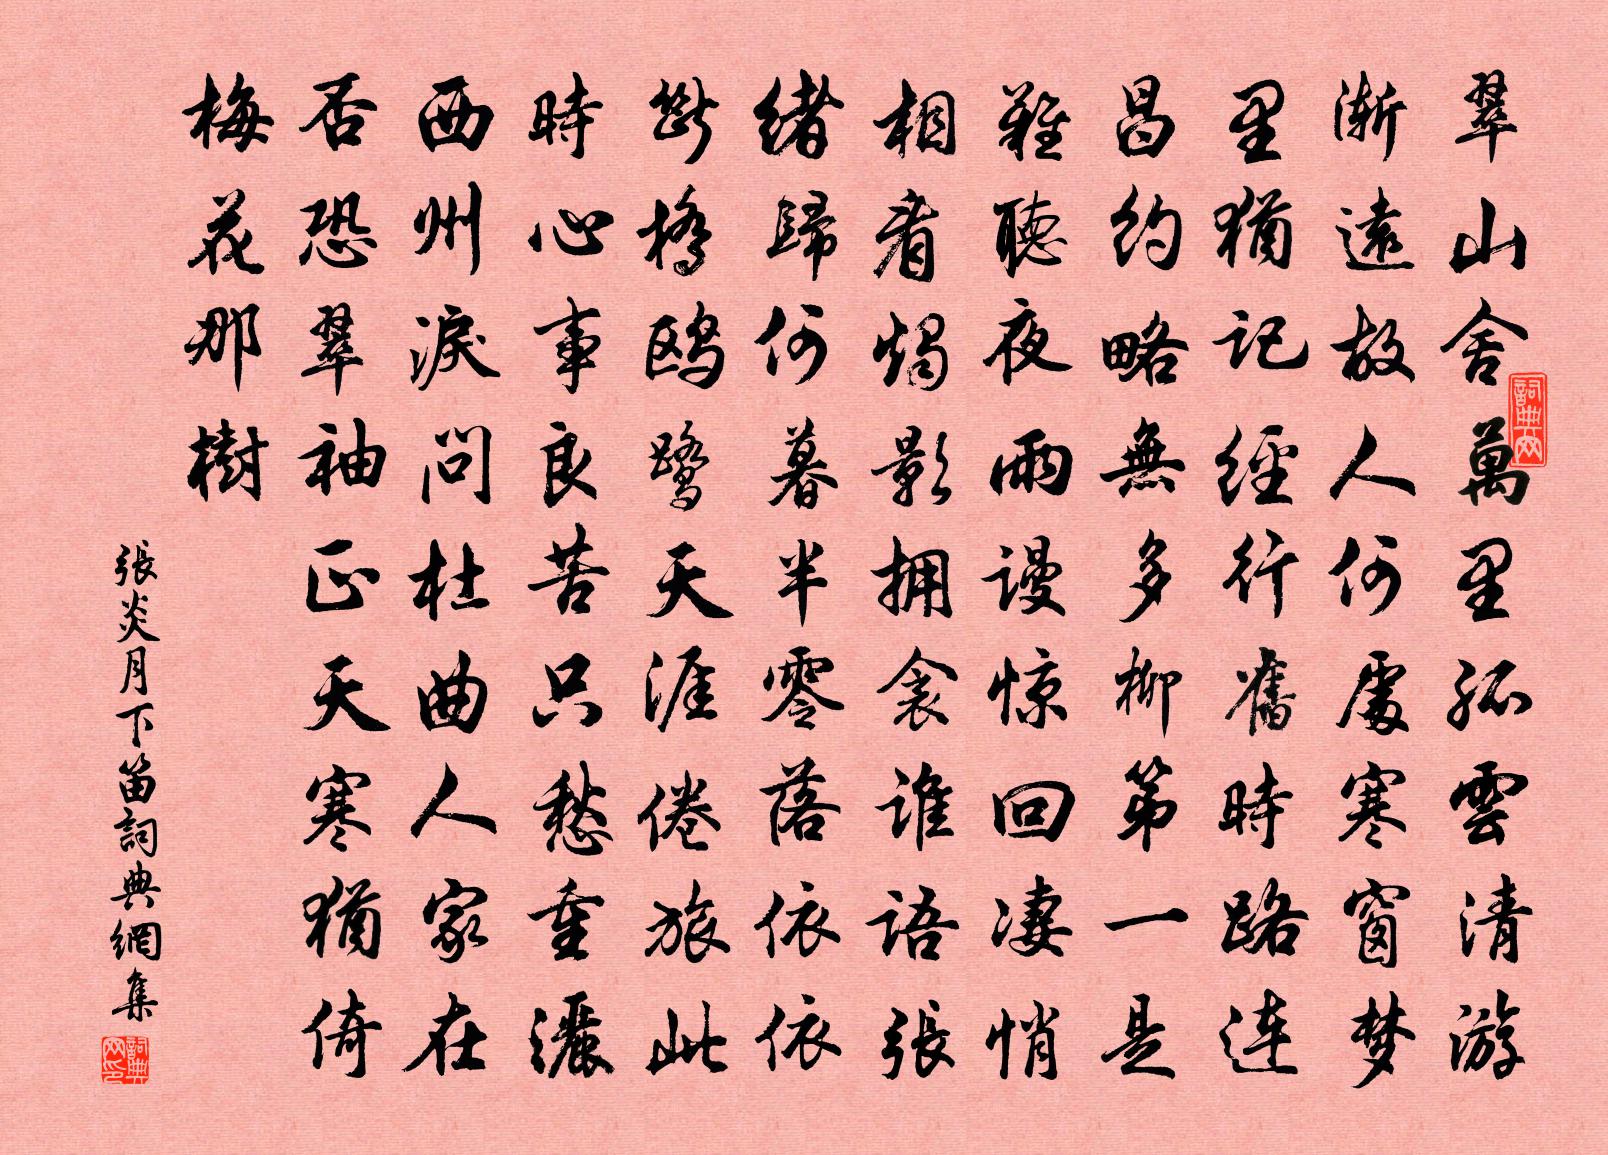 翠山舍萬里孤雲清游
漸遠故人何處寒窗梦
里猶記經行舊時路連
昌約略無多柳第一是
難聽夜雨謾惊回凄悄
相看燭影拥衾誰語張
緒歸何暮半零落依依
斷橋鷗鷺天涯倦旅此
時心事良苦只愁重灑
西州淚問杜曲人家在
否恐翠袖正天寒猶倚
梅花那樹
張炎月下笛詞典網集
詞典网
詞典网印